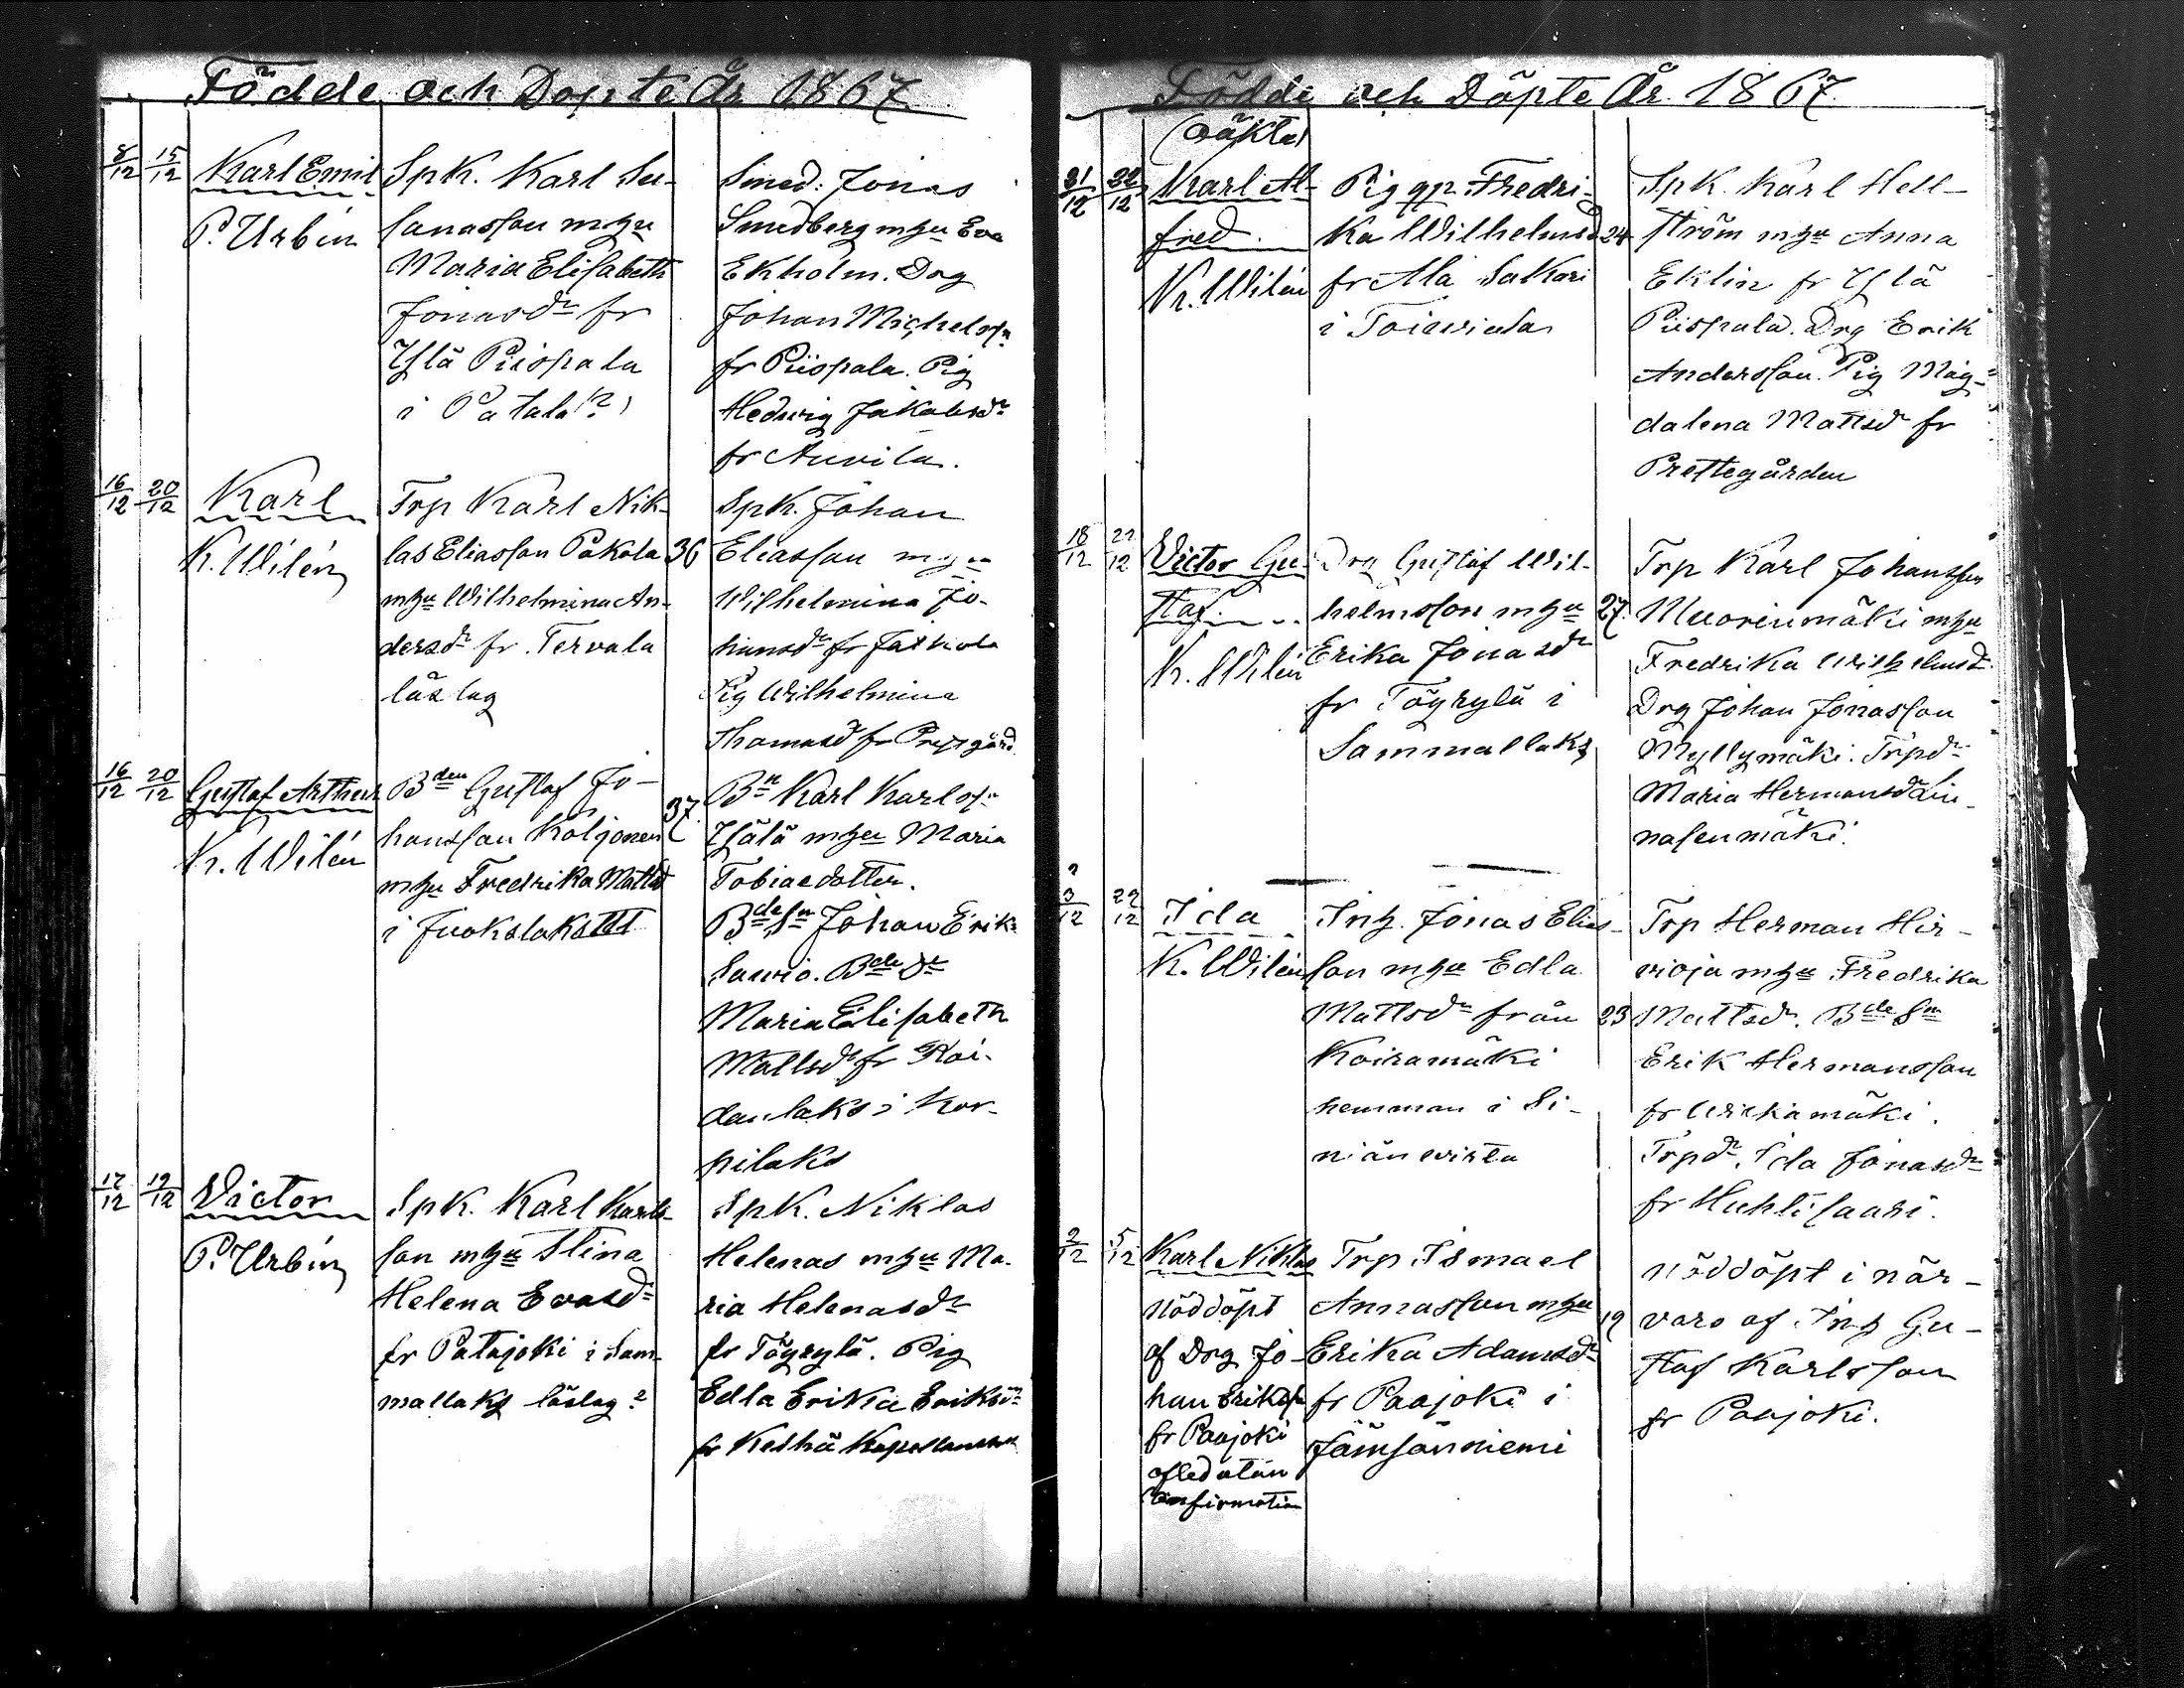 Födde och Döpte År 1867
8/12 15/12 Karl Emil
P. Urbin
Spk. Karl Su-
sanasson m hu
Maria Elisabeth
Jonasdr fr
Yslä Piispala
i Patala (?)
Smed. Jonas
Smedberg m hu Eva
Ekholm. Dog
Johan Michelssn
fr Piispala. Pig
Hedvig Jakobsdr
fr Auvila.
16/12 20/12 Karl
K. Wilén
Trp Karl Nik-
las Eliasson Pakola 36
m hu Wilhelmina An-
dersdr fr. Tervala
läslag
Spk. Johan
Eliasson m hu
Wilhelmina Jo-
hansdr fr
Pig Wilhelmina
Thomasd fr Prestgård
16/12 20/12 Gustaf Arthur
K. Wilén
Bden Gustaf Jo-
hansson Koljonen 37
m hu Fredrika Mattsd
i Juokslaks
Bn Karl Karlssn
Ylälä m hu Maria
Tobiaedotter.
Bdesn Johan Erik
Saurio. Bde dr
Maria Elisabeth
Mattsdr fr Koi-
danlaks i Kor-
pilaks
17/12 19/12 Victor
P. Urbin
Spk. Karl Karls-
son m hu Stina
Helena Evasdr
fr Patajoki i Sam-
mallaks läslag?
Spk. Niklas
Helenas m hu Ma-
ria Helenasdr
fr Töyrylä. Pig
Edla Erika Eriksdr
fr Keshä
Födde och Döpte År 1867
(oäkta)
21/12 22/12 Karl Al-
fred.
K. Wilén
Pig qp. Fredri-
ka Wilhelmsd 24
fr Ala Sakari
i Toivila
Spk. Karl Hell-
ström m hu Anna
Eklin fr Yslä
Piispala. Drg Erik
Andersson. Pig Mag-
dalena Mattsdr fr
Prestegården
18/12 22/12 Victor Gu-
staf.
K. Wilén
Drg Gustaf Wil-
helmsson m hu 27.
Erika Jonasdr
fr Töyrylä i
Sammallaks
Trp Karl Johansson
Muorinmäki m hu
Fredrika Wilhelmsd
Drg Johan Jonasson
Myllymäki. Trpdr
Maria Hermansdr Lin-
nasenmäki.
?
3/12 22/12 Ida
K. Wilén
Inh. Jonas Elias-
son m hu Edla
Mattsdr från 23
Koiramäki
hemman i Si-
niänvirta
Trp Herman Hir-
vioja m hu Fredrika
Mattsdr. Bde Sn
Erik Hermansson
fr Wirkamäki.
Trpdr. Ida Jonasdr
fr Huhtisaari.
2/12 5/12 Karl Niklas
nöddöpt
af Drg Jo-
han Erikssn
fr Paajoki
afled utan
Confirmation
Trp. Ismael
Annasson m hu 19
Erika Adamsdr
fr Paajoki i
Jämsänniemi
nöddöpt i när-
varo af Inh Gu-
staf Karlsson
fr Paajoki.